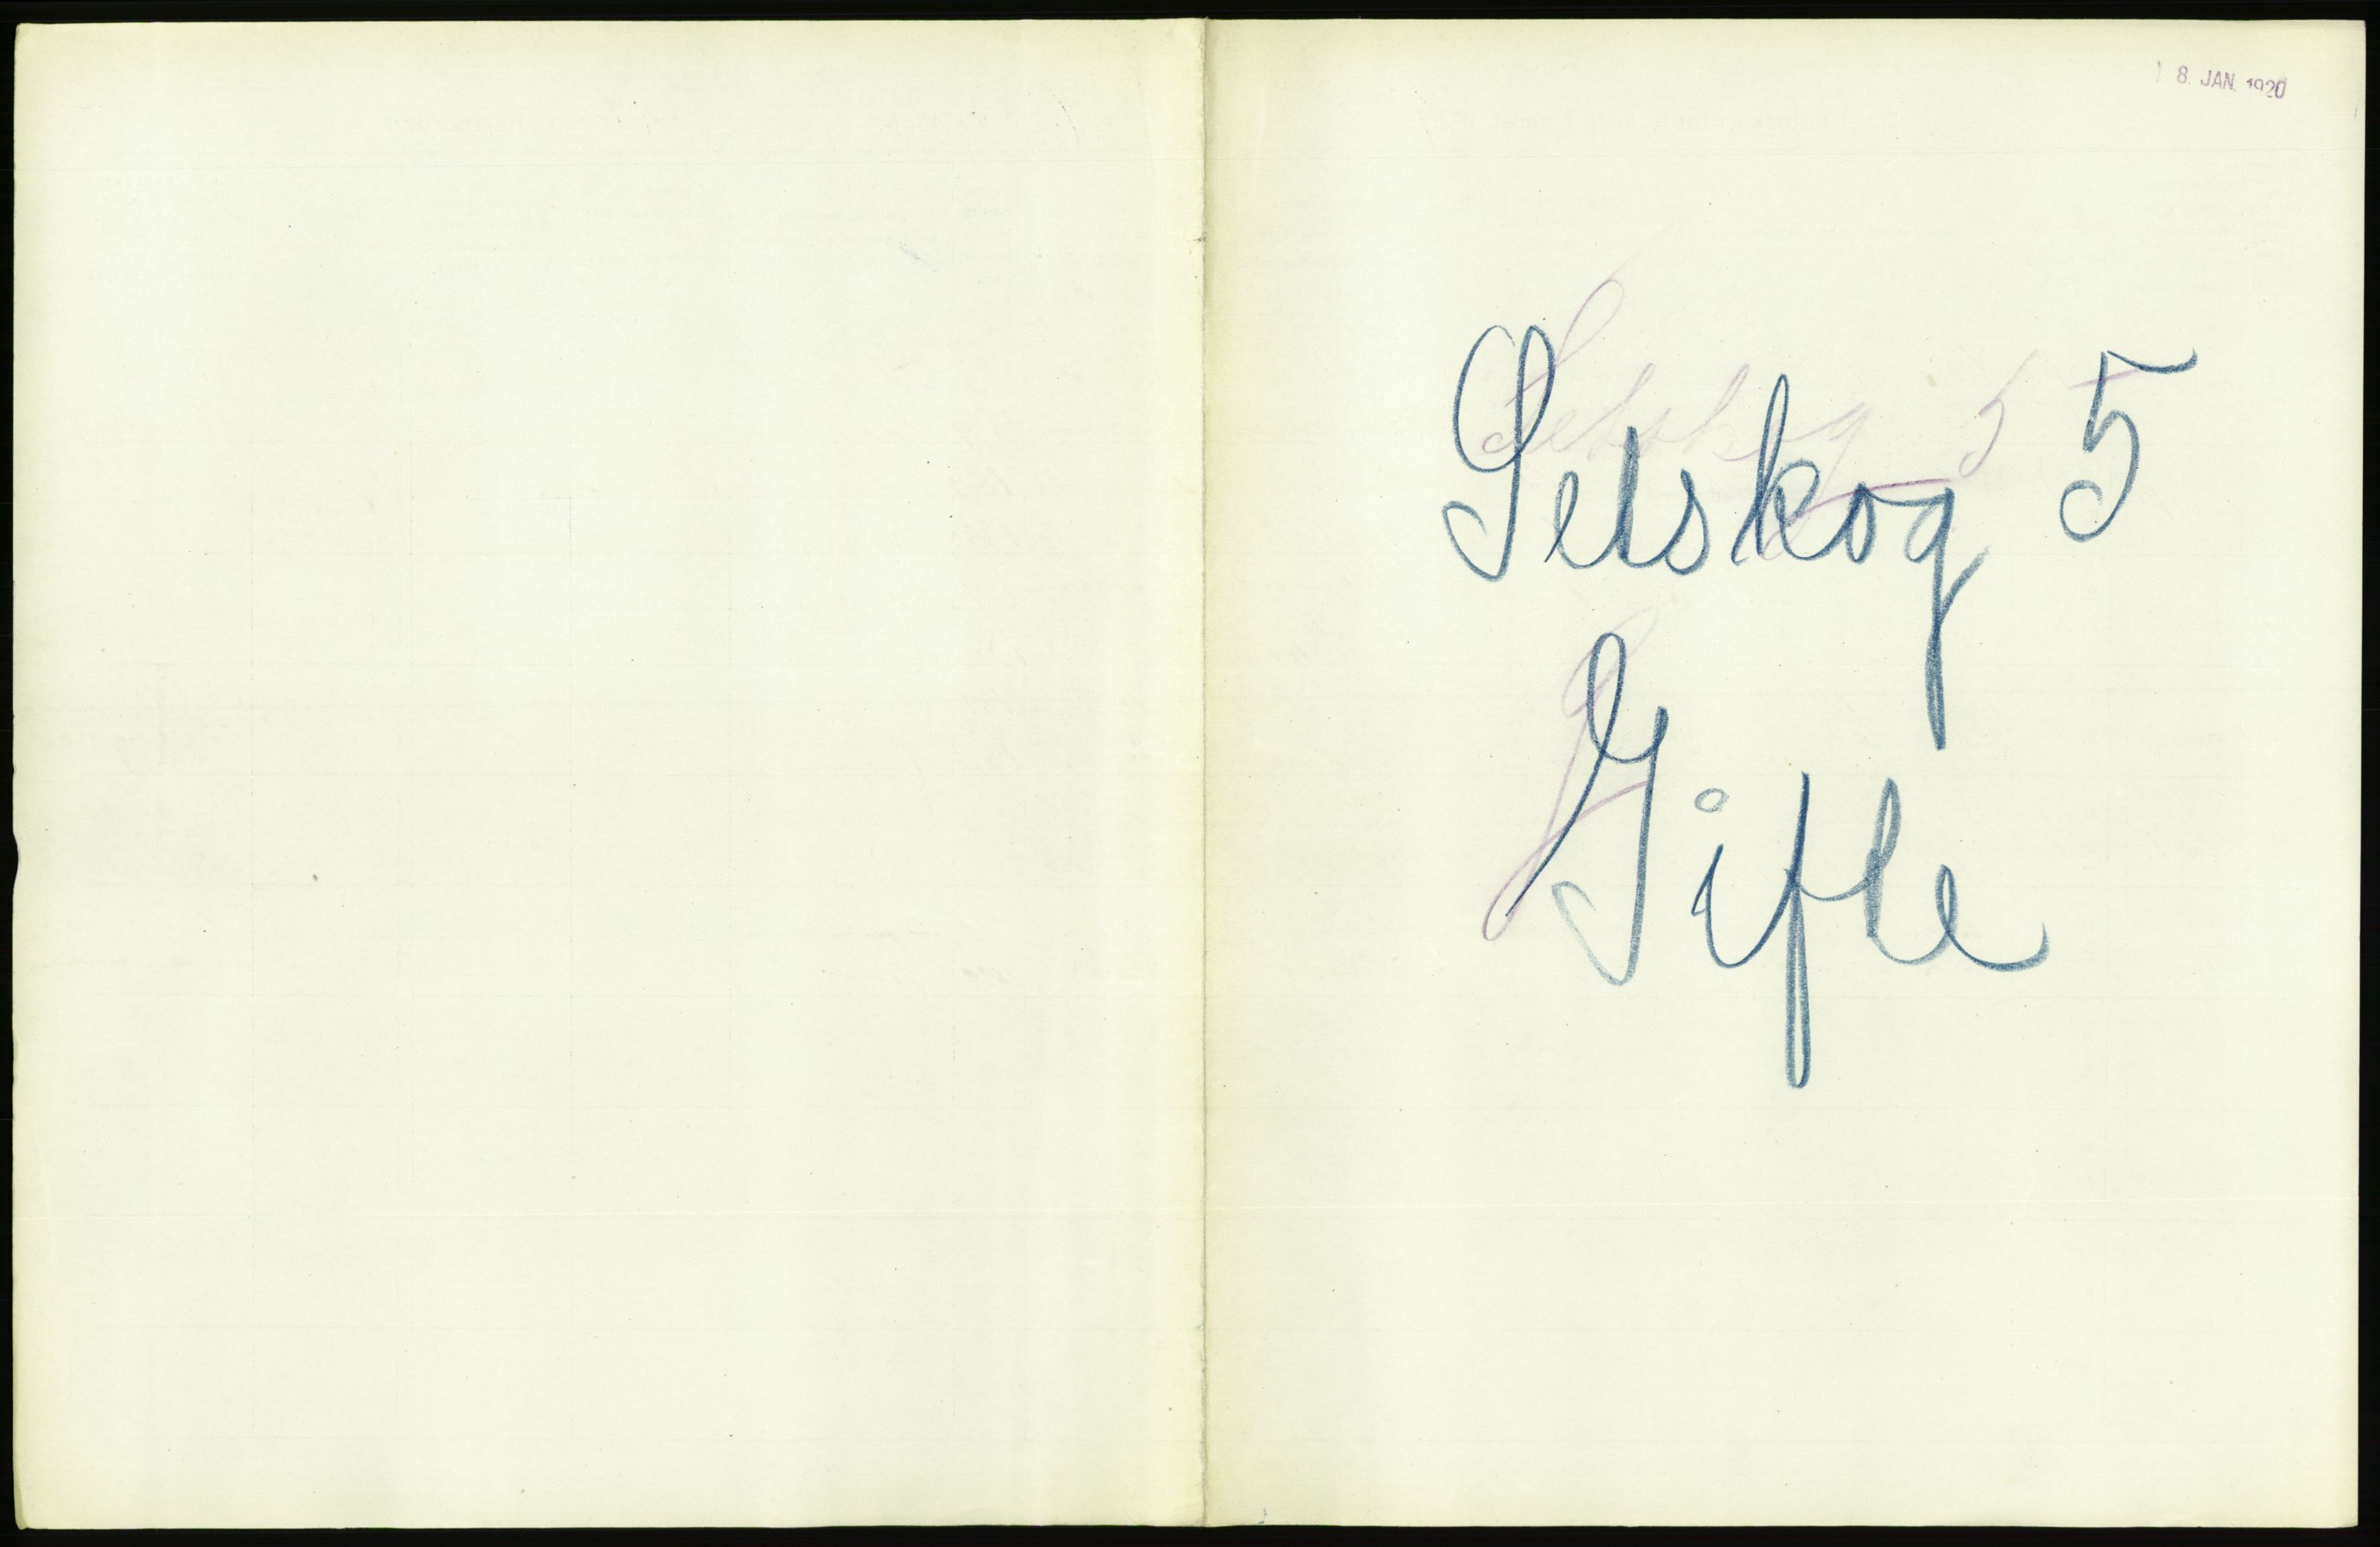 8. JAN. 1920
Setskog 5
Gifte